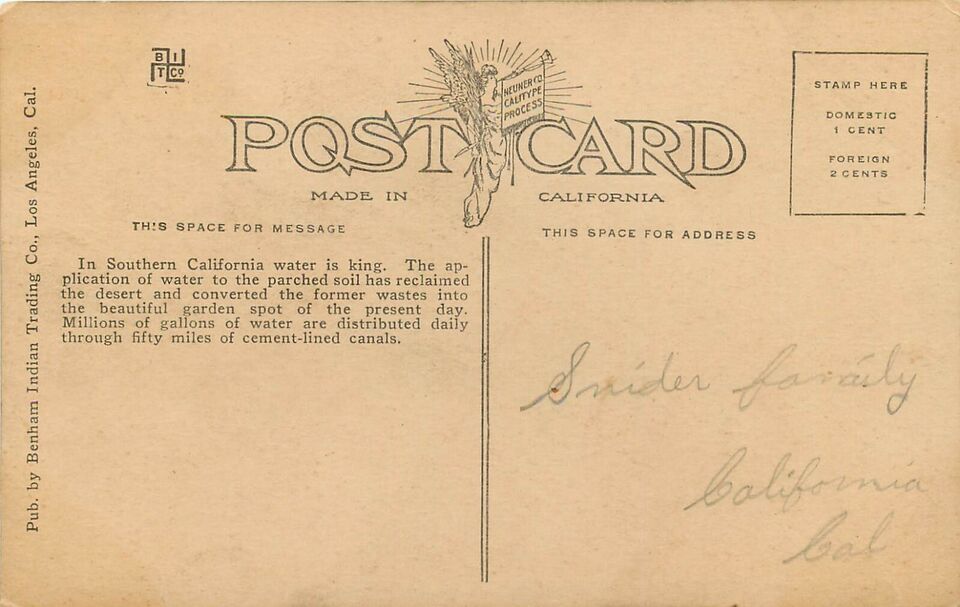 B I
T Co
NEUNER CO.
CALITYPE
PROCESS
POST CARD
MADE IN CALIFORNIA
STAMP HERE
DOMESTIC
1 CENT
FOREIGN
2 CENTS
THIS SPACE FOR MESSAGE
In Southern California water is king. The ap-
plication of water to the parched soil has reclaimed
the desert and converted the former wastes into
the beautiful garden spot of the present day.
Millions of gallons of water are distributed daily
through fifty miles of cement-lined canals.
THIS SPACE FOR ADDRESS
Snider family
California
Cal
Pub. by Benham Indian Trading Co., Los Angeles, Cal.